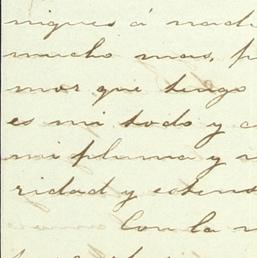 nigues á nad
mucho mas, p
mor que tengo
es mi todo y c
mi pluma y
ridad y estens
Con la